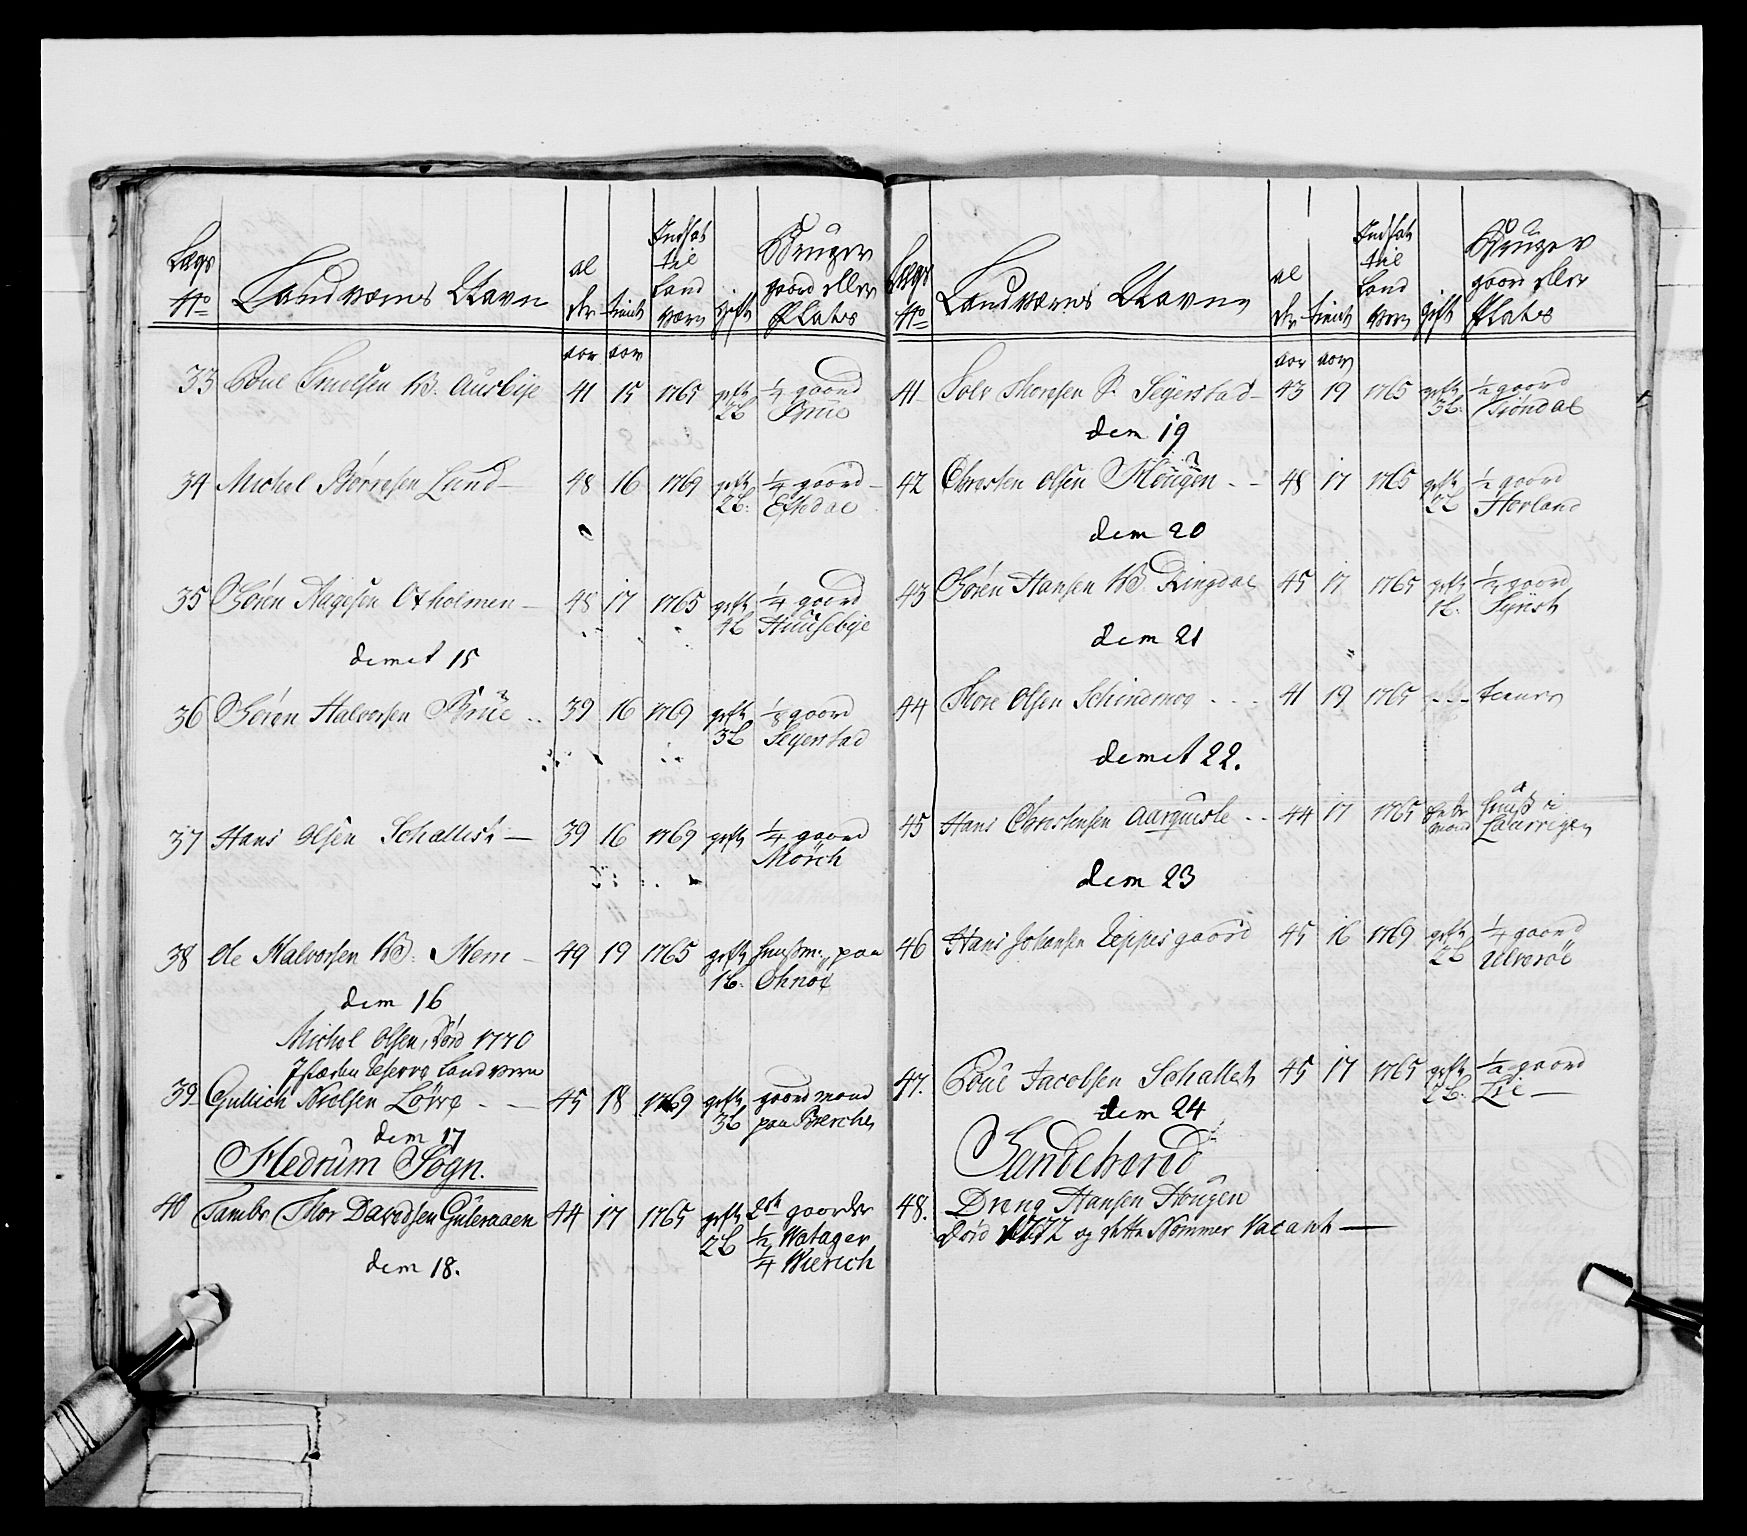 Lægs No Landværns Navn al der tient Indsat til Land værn gift Bruger gaard eller Platz
aar aar
33 Poul Knudsen B. Ausbÿe 41 15 1765 gift 2 b ¼ gaard Brue
34 Michel Børresen Lund 48 16 1769 gift 2 b: ¼ gaard Eftedal
35 Søren Aagesen Oxholmen 48 17 1765 gift 4 b ¼ gaard Huusebÿe
demet 15
36 Søren Halvorsen Brue 39 16 1769 gift 3 b ⅛ gaard Segerstad
37 Hans Olsen Schallest 39 16 1769 gift ¼ gaard Mørch
38 Ole Halvorsen B: Hem 49 19 1765 gift 1 b. huusm: paa Ohnøe
dem 16
Michel Olsen, død 1770
Isteden Reserve Landværn
39 Gullich Nielsen Löwe 45 18 1769 gift 3 b gaardmand paa Bierche
dem 17
Hedrum Sogn.
40 Tambr Thor Davidsen Guleraaen 44 17 1765 gift 2 b 2de gaarder
½ Watager
¼ Wierich
dem 18.
Lægs No Landværns Navn al der tient Indsat til Land værn gift Bruger gaard eller Platz
aar aar
41 Solv Thoresen S. Segerstad 43 19 1765 gift 3 b. ½ gaard Giöndal
dem 19
42 Christen Olsen Hougen 48 17 1765 gift 2 b ½ gaard Horland
dem 20
43 Søren Hansen B. Ringdal 45 17 1765 gift 1 b. ¼ gaard Syrist
dem 21
44 Thore Olsen Schindmog 41 19 1765 - - - tiener
demet 22.
45 Hans Christensen Aarquisle 44 17 1765 Enke mand huuß i Laurvigen
dem 23
46 Hans Johansen Teppesgaard 45 16 1769 gift 2 b ¼ gaard Ulverøe
47. Poul Jacobsen Schallest 45 17 1765 gift 2 b. ½ gaard Lie
dem 24
Sandeherred
48. Dreng Hansen Hougen
død 1772 og dette Nommer Vacant